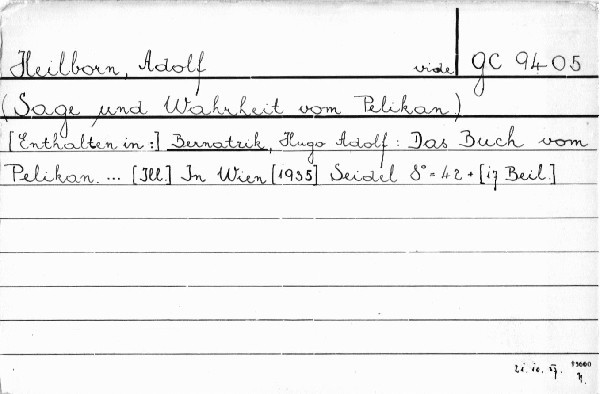 Heilborn, Adolf vide GC 9405
(Sage und Wahrheit vom Pelikan)
[Enthalten in:] Bernatzik, Hugo Adolf: Das Buch vom
Pelikan. ... [Ill.] In Wien [1935] Seidel 8° = 42 + [17 Beil.]